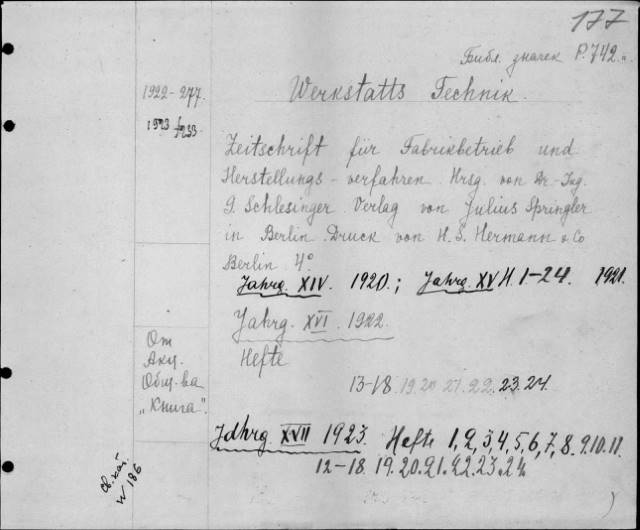 177
Библ. значек P.742.
1922-277.
1923/233
Werkstatts Technik.
Zeitschrift für Fabrikbetrieb und
Herstellungs-verfahren. Hrsg. von Dr-Ing.
G. Schlesinger. Verlag von Julius Springler
in Berlin. Druck von H. S. Hermann & Co
Berlin 4°
Jahrg. XIV. 1920.; Jahrg. XV H. 1-24. 1921.
Jahrg. XVI. 1922.
Hefte
13-18. 19.20 21.22. 23.24.
От
Акц.
Общ-ва
„Книга".
Jahrg. XVII 1923. Hefte 1,2,3,4,5,6,7,8.9.10.11.
12-18. 19.20.21.22.23.24
W 186